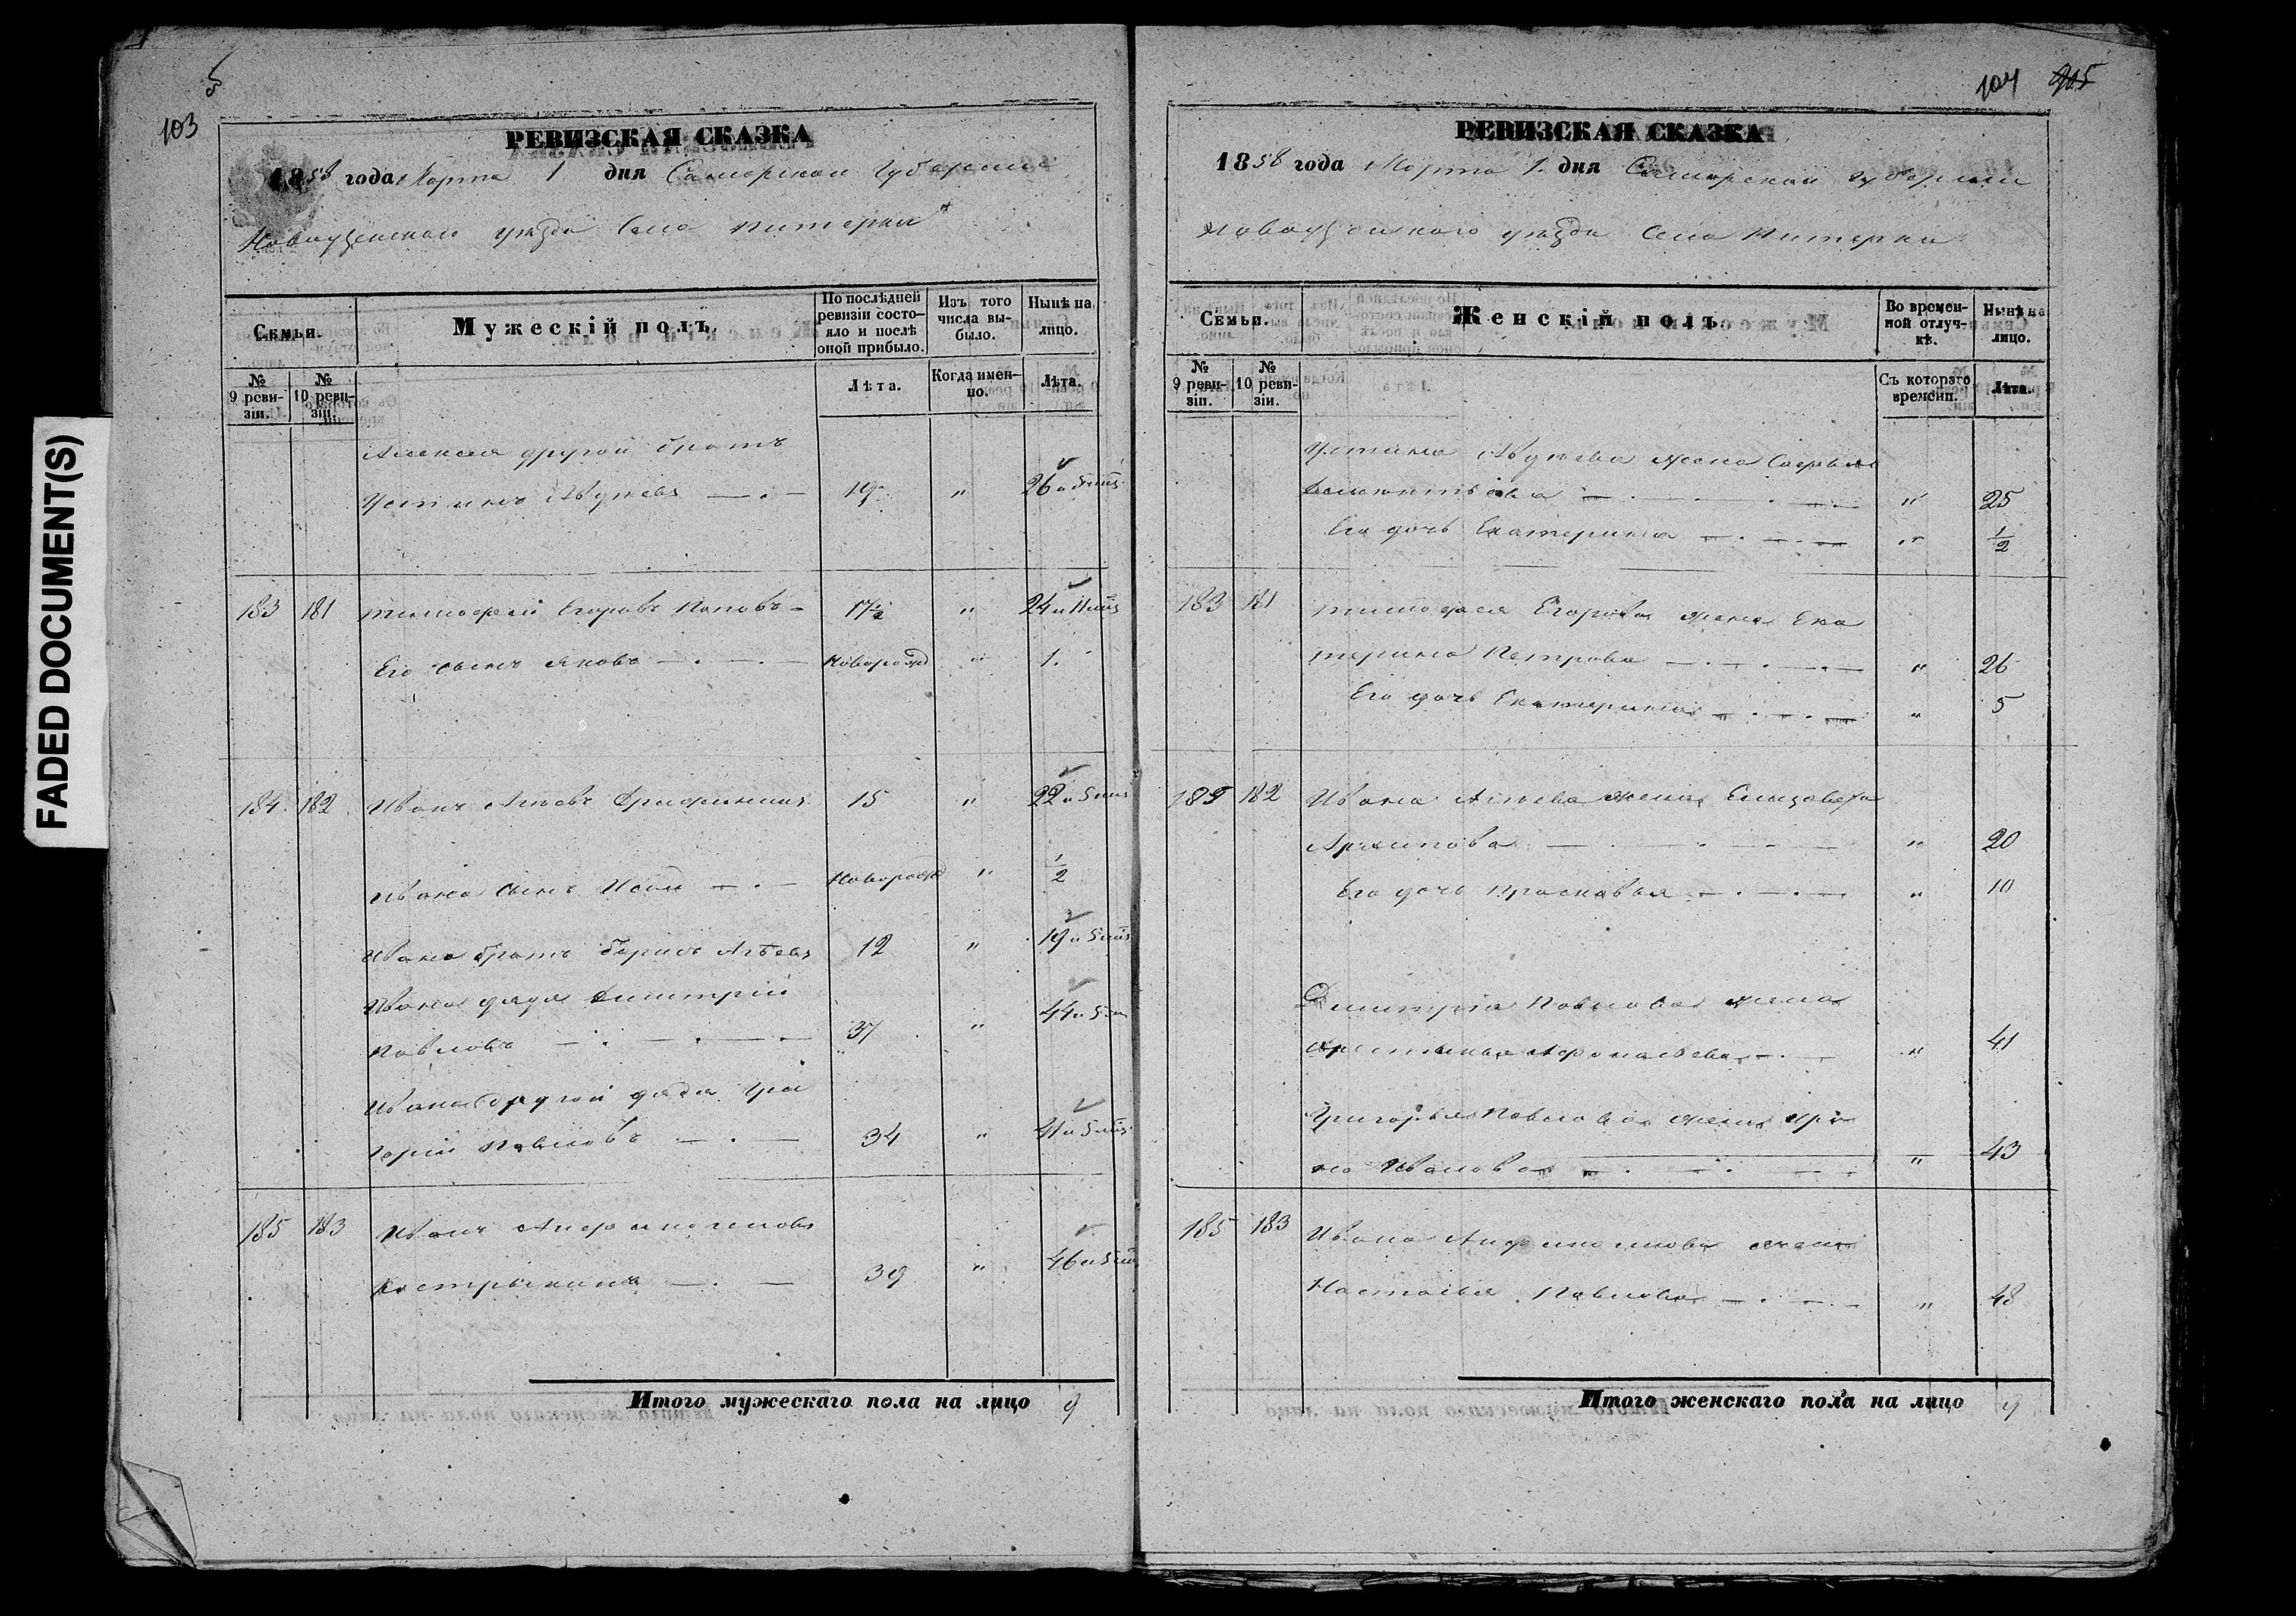 FADED DOCUMENT(S)
103
РЕВИЗСКАЯ СКАЗКА
1858 года Марта 1 дня Самарской Губернии
Новоузенскаго уѣзда Села Питерки
Семьи.
Мужескій полъ.
По послѣдней ревизіи состояло и послѣ оной прибыло.
Изъ того числа выбыло.
Нынѣ на лицо.
№ 9 ревизіи.
№ 10 ревизіи.
Лѣта.
Когда именно.
Лѣта.
Алексея другой братъ
Устинъ 19 " 26
183 181 Тимофей Егоровъ Поповъ 17½ " 24 и 11
Его сынъ Яковъ Новорожд " 1.
184. 182 Иванъ 15 " 22 и 5
Ивана сынъ Новорожд " ½
Ивана братъ Борисъ 12 " 19 и 5
Ивана дядя Дмитрій
Павловъ 37 " 44 и 5
Ивана другой дядя Гри
горій Павловъ 34 " 41 и 5
185 183 Иванъ
39 " 46 и 5
Итого мужескаго пола на лицо 9
104 205
РЕВИЗСКАЯ СКАЗКА
1858 года Марта 1. дня Самарской губернии
Новоузенскаго уѣзда Села Питерки
Семьи.
Женскій полъ.
Во временной отлучкѣ.
Нынѣ на лицо.
№ 9 ревизіи.
№ 10 ревизіи.
Съ котораго времени.
Лѣта.
Устина жена
" 25
Его дочь Екатерина " ½
183 181 Тимофея Егорова жена Ека
терина Петрова " 26
Его дочь Екатерина " 5
182 Ивана жена Елизавета
Архипова " 20
Его дочь Прасковья " 10
Дмитрія Павлова жена
Афонасьева " 41
Григорья Павлова жена Ири
на Иванова " 43
185 183 Ивана жена
Настасья Павлова " 48
Итого женскаго пола на лицо 9